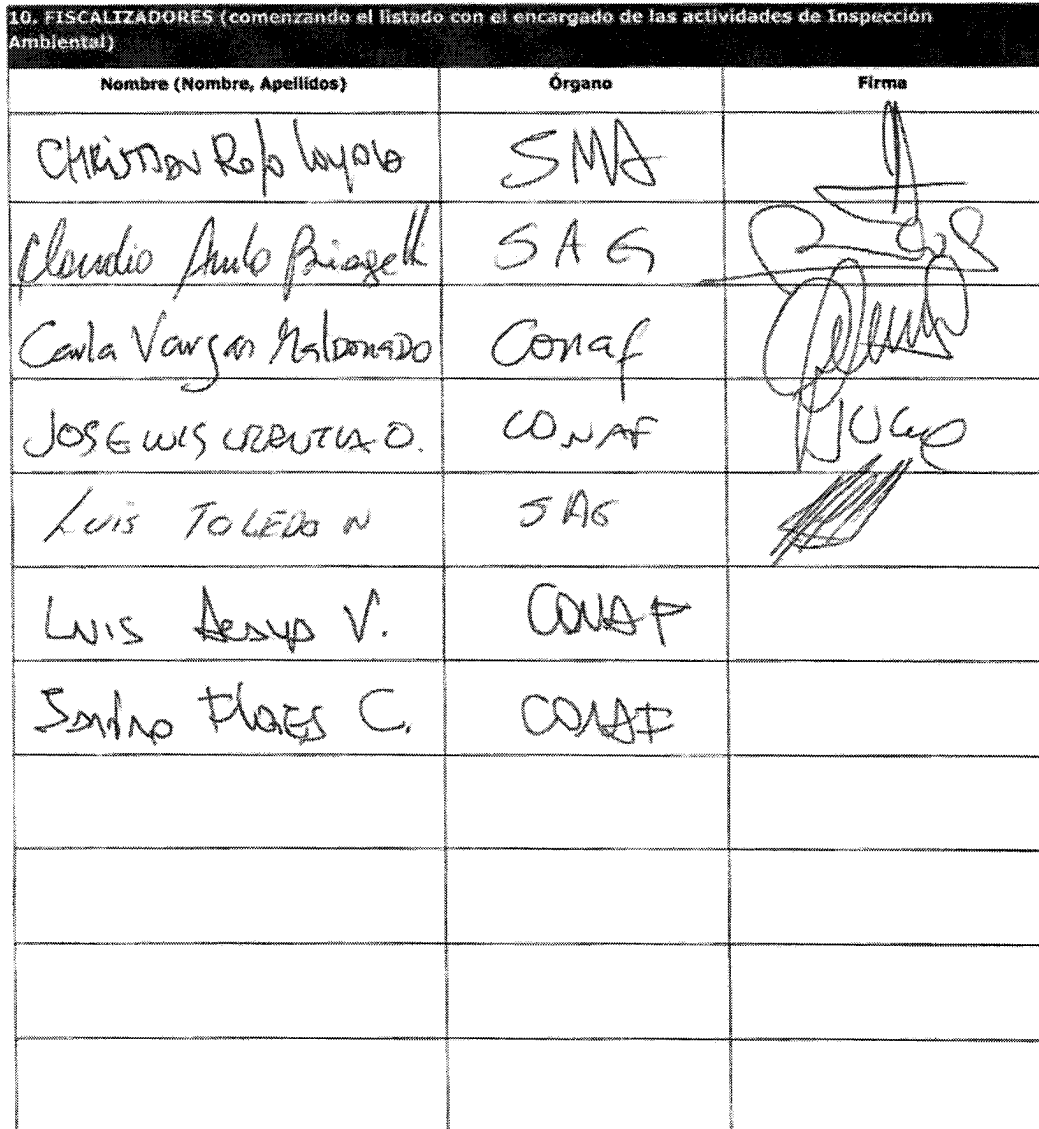 10. FISCALIZADORES (comenzando el listado con el encargado de las actividades de Inspección
Ambiental)
Nombre (Nombre, Apellidos) Órgano Firma
CHRISTIAN Rojo Loyola SMA
Claudio Biagetti SAG
Carla Vargas MalDonaDo Conaf
JOSE LUIS URRUTIA O. CONAF
Luis TOLEDO N SAG
LUIS Araya V. CONAF
Sandro FloRES C. CONAF